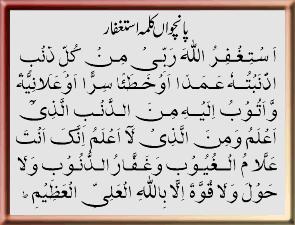 پانچواں کلمہ استغفار
اَسْتَغْفِرُ اللهَ رَبِّیْ مِنْ کُلِّ ذَنْۢبٍ
اَذْنَبْتُهٗ عَمَدًا اَوْخَطَـًٔا سِرًّا اَوْعَلَانِيَةً
وَّاَتُوْبُ اِلَيْهِ مِنَ الذَّنْۢبِ الَّذِیْٓ
اَعْلَمُ وَمِنَ الَّذِیْ لَآ اَعْلَمُ اِنَّكَ اَنْتَ
عَلَّامُ الْغُيُوْبِ وَغَفَّارُ الذُّنُوْبِ وَلَا
حَوْلَ وَلَا قُوَّةَ اِلَّا بِاللهِ الْعَلِیِّ الْعَظِيْمِ ط